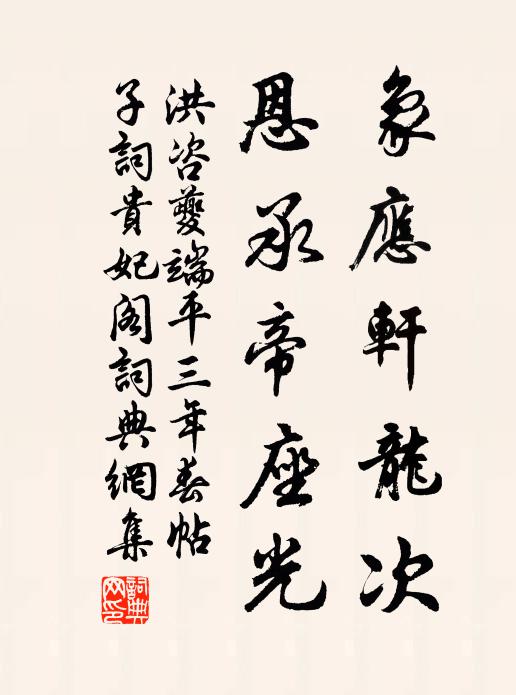 象應軒龍次
恩承帝座光
洪咨夔端平三年春帖
子詞貴妃閣詞典網集
詞典网印